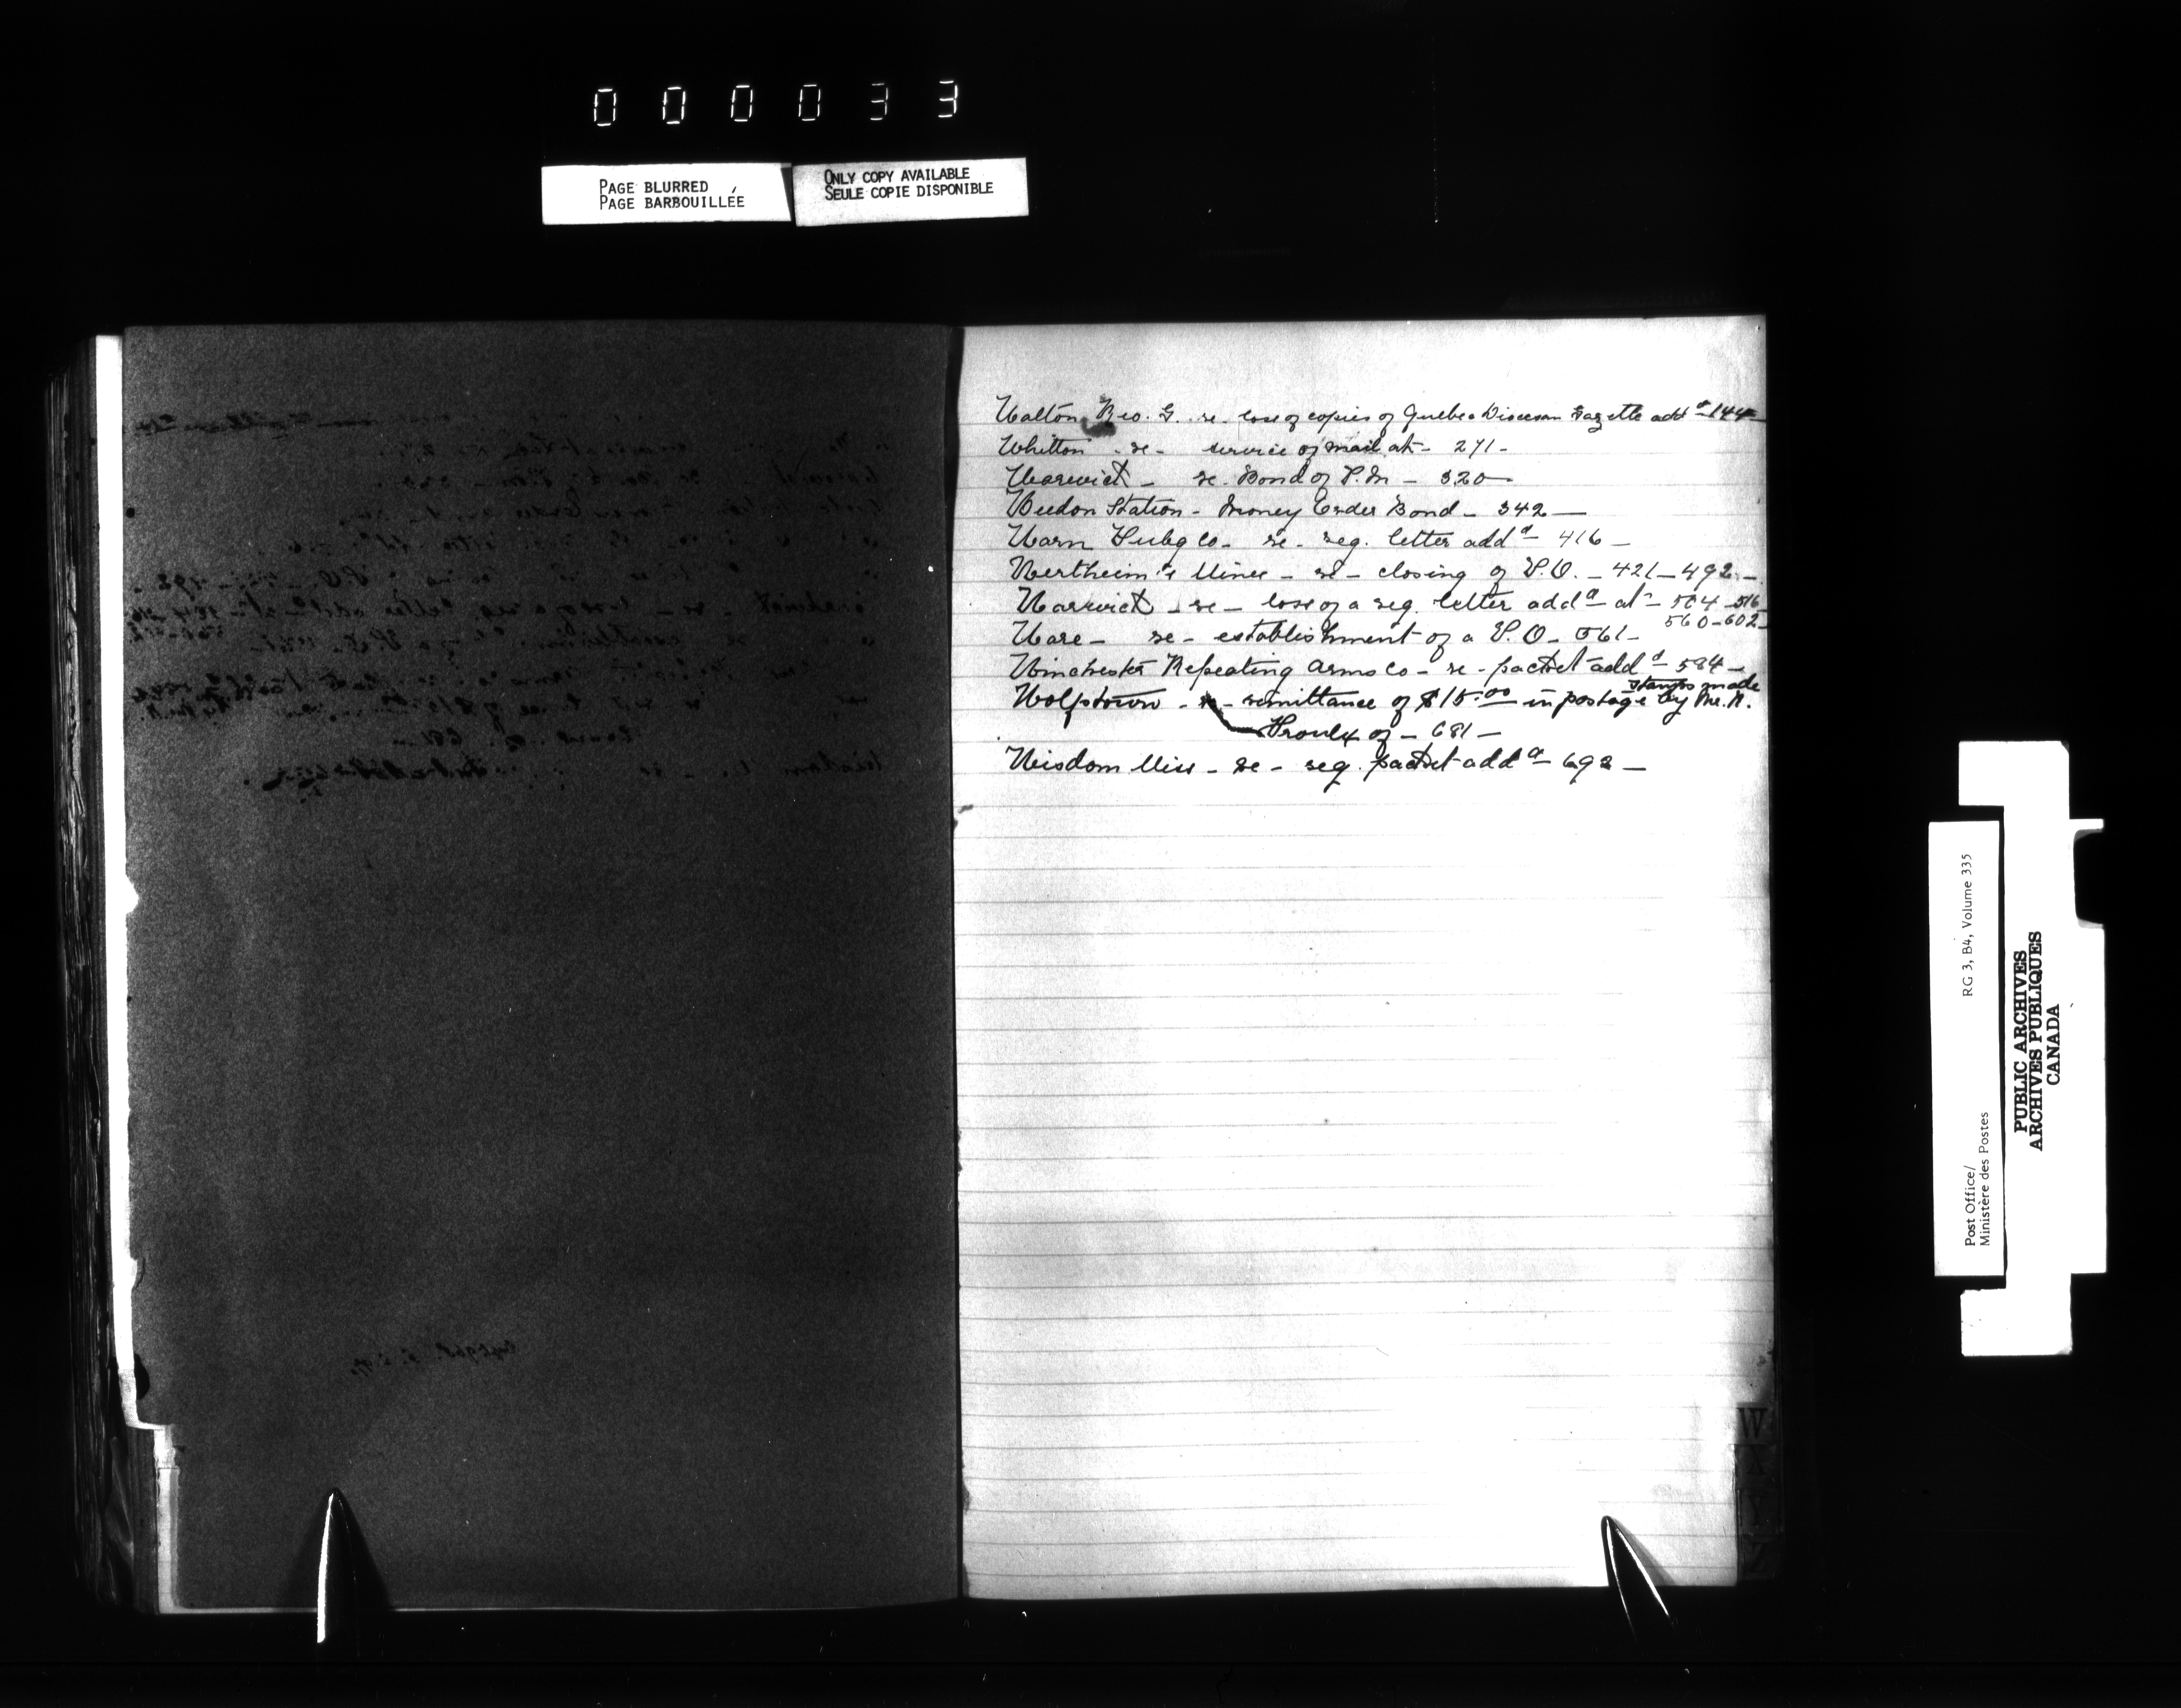 000033
PAGE BLURRED
PAGE BARBOUILLÉE
ONLY COPY AVAILABLE
SEULE COPIE DISPONIBLE
Walton Geo. G. re. loss of copies of Quebec Diocesan Gazette add d 144
Whitton - re - service of mail at - 271 -
Warwick - re. Bond of P.M - 320 -
Weedon Station - Money Order Bond - 342 -
Warn Pubg Co - re - reg. letter add d - 416 -
Wertheim's Mines - re - closing of P.O. - 421 - 492 -
Warwick - re - loss of a reg. letter add d at - 504 - 516
560 - 602 -
Ware - re - establishment of a P.O - 561 -
Winchester Repeating Arms Co - re - packet add d - 584 -
Wolfstown - re - remittance of $15.00 in postage stamps made by Mr. N.
Proulx of - 681 -
Wisdom Miss - re - reg. packet add d - 692 -
W
X
Y
Z
Post Office/
Ministère des Postes
RG 3, B4, Volume 335
PUBLIC ARCHIVES
ARCHIVES PUBLIQUES
CANADA